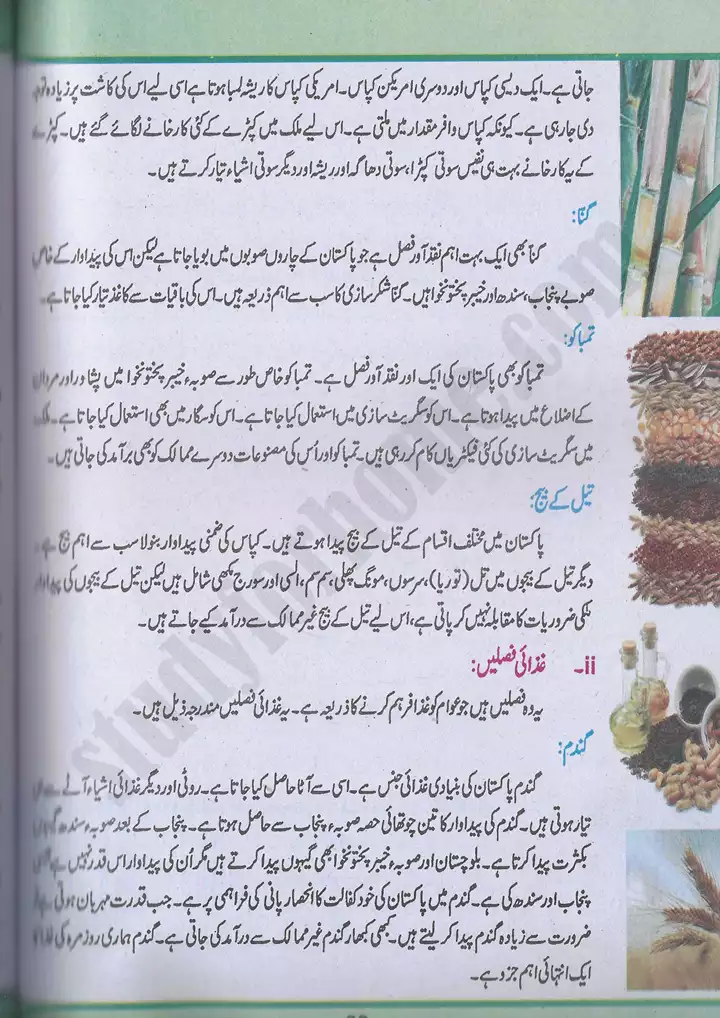 جاتی ہے۔ ایک دیسی کپاس اور دوسری امریکن کپاس۔ امریکی کپاس کا ریشہ لمبا ہوتا ہے اسی لیے اس کی کاشت پر زیادہ توجہ
دی جا رہی ہے۔ کیونکہ کپاس وافر مقدار میں ملتی ہے۔ اس لیے ملک میں کپڑے کے کئی کارخانے لگائے گئے ہیں۔ کپڑے
کے یہ کارخانے بہت ہی نفیس سوتی کپڑا، سوتی دھاگہ اور ریشہ اور دیگر سوتی اشیاء تیار کرتے ہیں۔
گنّا:
گنّا بھی ایک بہت اہم نقد آور فصل ہے جو پاکستان کے چاروں صوبوں میں بویا جاتا ہے لیکن اس کی پیداوار کے خاص
صوبے پنجاب، سندھ اور خیبر پختونخوا ہیں۔ گنّا شکر سازی کا سب سے اہم ذریعہ ہیں۔ اس کی باقیات سے کاغذ تیار کیا جاتا ہے۔
تمباکو:
تمباکو بھی پاکستان کی ایک اور نقد آور فصل ہے۔ تمباکو خاص طور سے صوبہء خیبر پختونخوا میں پشاور اور مردان
کے اضلاع میں پیدا ہوتا ہے۔ اس کو سگریٹ سازی میں استعمال کیا جاتا ہے۔ اس کو سگار میں بھی استعمال کیا جاتا ہے۔ ملک
میں سگریٹ سازی کی کئی فیکٹریاں کام کر رہی ہیں۔ تمباکو اور اُس کی مصنوعات دوسرے ممالک کو بھی برآمد کی جاتی ہیں۔
تیل کے بیج:
پاکستان میں مختلف اقسام کے تیل کے بیج پیدا ہوتے ہیں۔ کپاس کی ضمنی پیداوار بنولا سب سے اہم بیج ہے۔
دیگر تیل کے بیجوں میں تل (توریا)، سرسوں، مونگ پھلی، سم سم، السی اور سورج مکھی شامل ہیں لیکن تیل کے بیجوں کی پیداوار
ملکی ضروریات کا مقابلہ نہیں کر پاتی ہے، اس لیے تیل کے بیج غیر ممالک سے درآمد کیے جاتے ہیں۔
ii۔ غذائی فصلیں:
یہ وہ فصلیں ہیں جو عوام کو غذا فراہم کرنے کا ذریعہ ہے۔ یہ غذائی فصلیں مندرجہ ذیل ہیں۔
گندم:
گندم پاکستان کی بنیادی غذائی جنس ہے۔ اسی سے آٹا حاصل کیا جاتا ہے۔ روٹی اور دیگر غذائی اشیاء آٹے سے
تیار ہوتی ہیں۔ گندم کی پیداوار کا تین چوتھائی حصہ صوبہء پنجاب سے حاصل ہوتا ہے۔ پنجاب کے بعد صوبہء سندھ گیہوں
بکثرت پیدا کرتا ہے۔ بلوچستان اور صوبہء خیبر پختونخوا بھی گیہوں پیدا کرتے ہیں مگر اُن کی پیداوار اس قدر نہیں ہے
پنجاب اور سندھ کی ہے۔ گندم میں پاکستان کی خود کفالت کا انحصار پانی کی فراہمی پر ہے۔ جب قدرت مہربان ہوتی ہے
ضرورت سے زیادہ گندم پیدا کر لیتے ہیں۔ کبھی کبھار گندم غیر ممالک سے درآمد کی جاتی ہے۔ گندم ہماری روزمرہ کی غذا کا
ایک انتہائی اہم جزو ہے۔
studyinghome.com